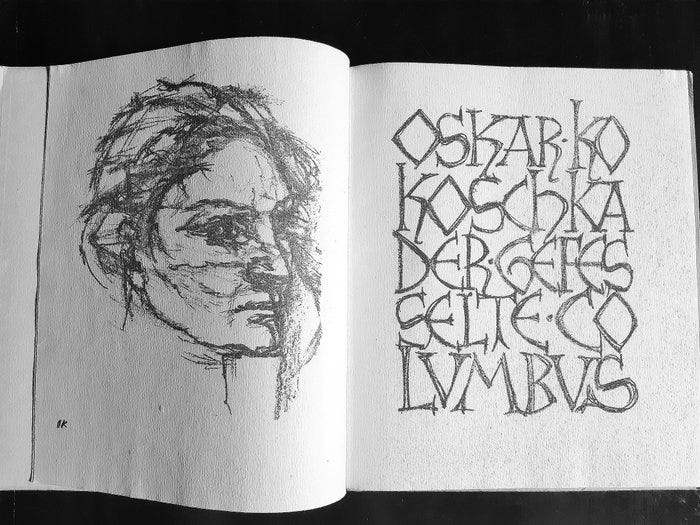 OK
OSKAR·KO
KOSCHKA
DER·GEFES
SELTE·CO
LUMBUS